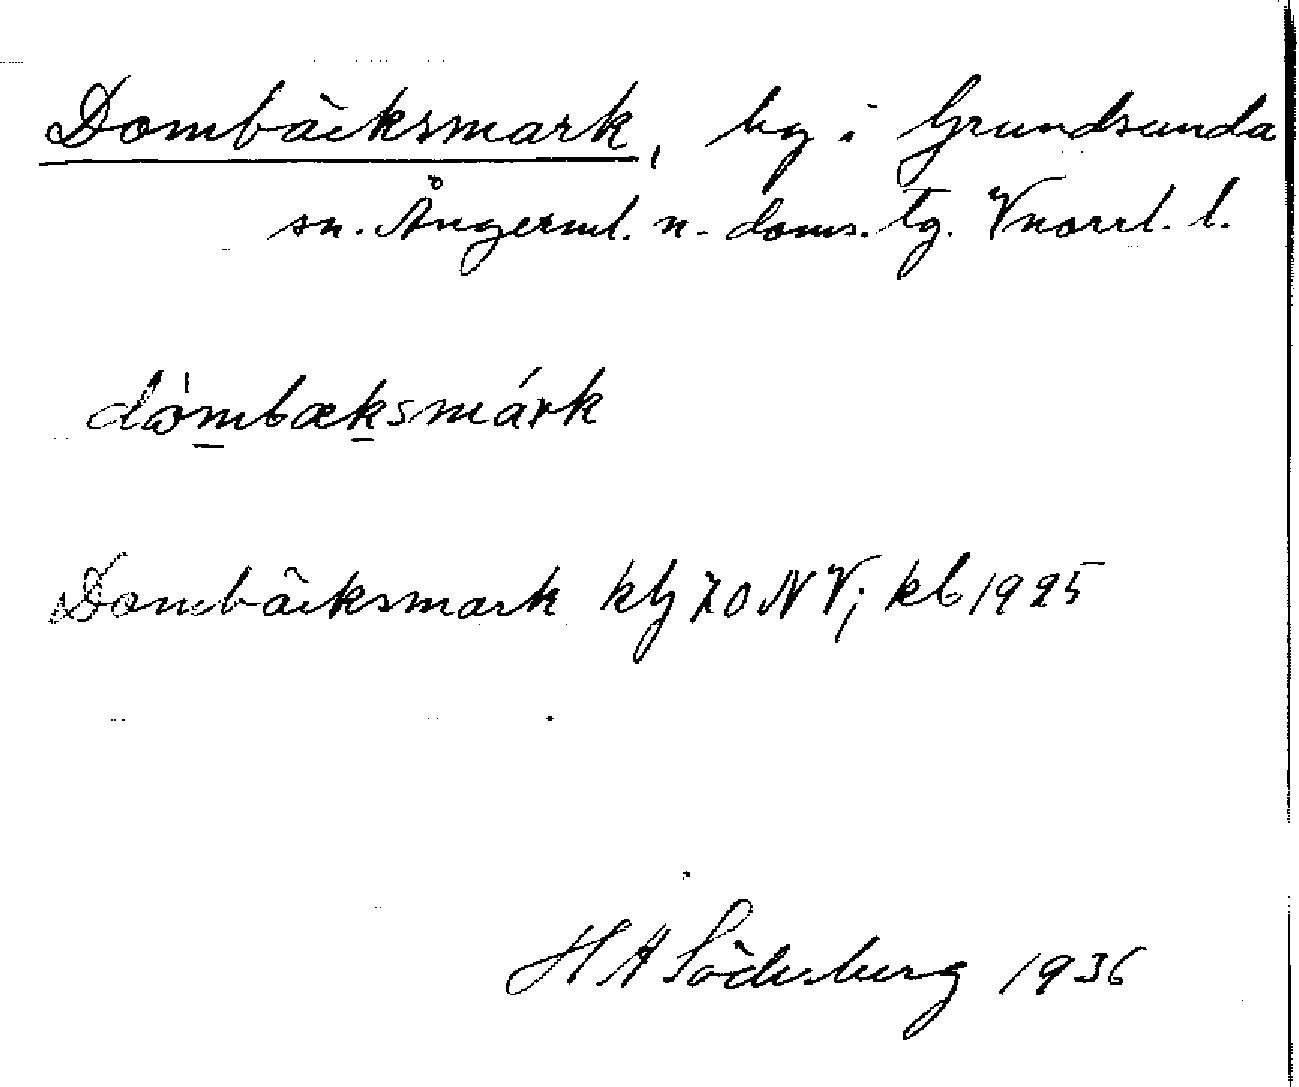 Dombäcksmark, by i Grundsunda
sn. Ångerml. n. doms. tg. Vnorrl. l.
dòmbæksmárk
Dombäcksmark kbl 70 NV; kb 1925
H A Söderberg 1936